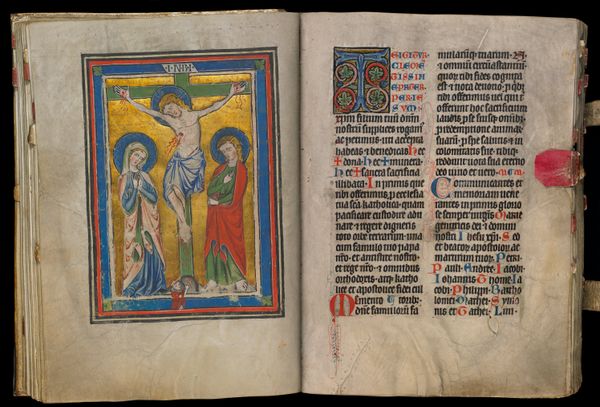 TEIGITVR
CLEME
TISSIM
EPATER
PERIE
xpm filium tuū dnm
nostrū supplices rogam
ac petimus. uti accepta
habeas & benedicas hec
+ dona. hec + munera
hec + sancta sacrificia
illibata. In primis que
tibi offerimus p ecclesia
tua sca katholica. quam
pacificare custodire adu
nare & regere digneris
toto orbe terrarum. una
cum famulo tuo papa
nro. et antistite nostro.
et rege nro. & omnibus
orthodoxis. atq katho
lice et apostolice fidei cul
Memento torib.
dne famulorū fa
mularūq tuarum. N.
& omniū circūastantiū.
quor tibi fides cognita
est & nota deuotio. p qb
tibi offerimus uel qui t
offerunt hoc sacrificium
laudis. p se suisq omib
p redemptione animar
suarū. p spe salutis & in
columitatis sue. tibiq
reddunt uota sua eterno
deo uiuo et uero.
Communicantes et
memoriam uene
rantes. in primis glorio
se semper uirgīs Marie
genitricis dei & domini
nostri Ihesu xpi. Sed
et beator apostolor ac
martirum tuor. Petri.
Pauli. Andree. Iacobi.
Iohannis. Thome. Ia
cobi. Philippi. Bartho
lomei. Mathei. Symo
nis et Tathei. Lini.